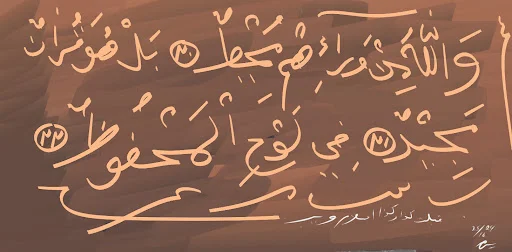 وَاللَّهُ مِنْ وَرَائِهِمْ مُحِيطٌ ٢٠ بَلْ هُوَ قُرْآنٌ
مَجِيدٌ ٢١ فِي لَوْحِ الْمَحْفُوظٌ ٢٢